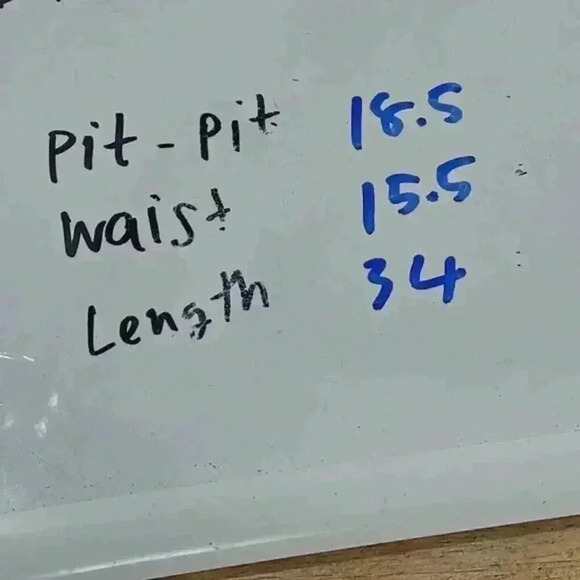 Pit - Pit 18.5
Waist 15.5
Length 34